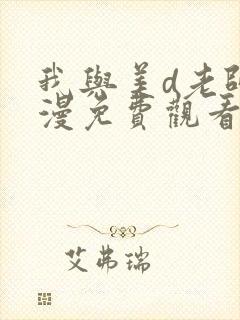 我與美d老師
漫免費觀看
艾弗瑞